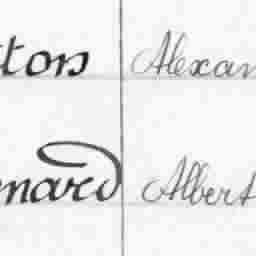 tors Alexan
nard Albert